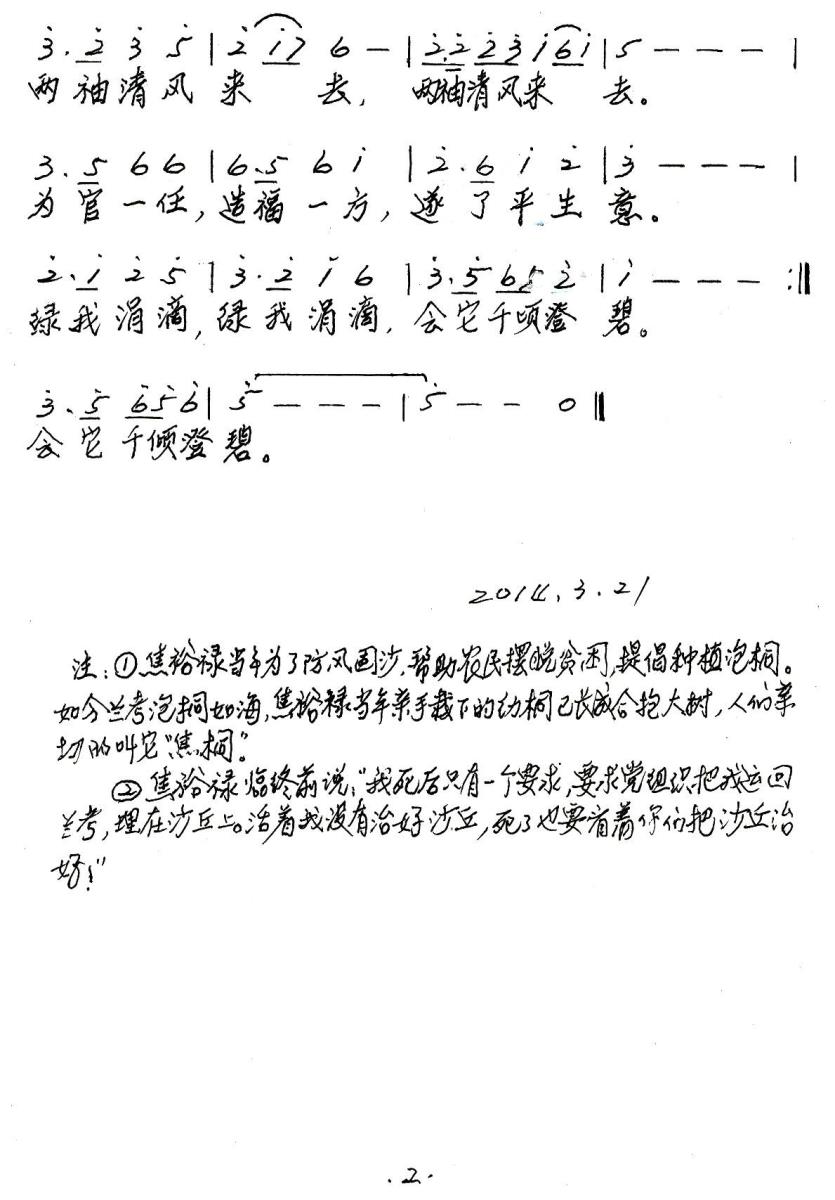 3. 2 3 5 | 2 i7 6 — | 2.2 23 i 6i | 5 — — — |
两袖清风来 去, 两袖清风来 去。
3. 5 6 6 | 6.5 6 i | 2. 6 i 2 | 3 — — — |
为官一任, 造福一方, 遂了平生意。
2. i 2 5 | 3. 2 i 6 | 3. 5 65 2 | i — — — :‖
绿我涓滴, 绿我涓滴, 会它千顷澄 碧。
3. 5 65 6 | 5 — — — | 5 — — 0 ‖
会它千顷澄 碧。
2014.3.21
注:①焦裕禄当年为了防风固沙,帮助农民摆脱贫困,提倡种植泡桐。
如今兰考泡桐如海,焦裕禄当年亲手栽下的幼桐已长成合抱大树,人们亲
切的叫它"焦桐"。
②焦裕禄临终前说:"我死后只有一个要求,要求党组织把我运回
兰考,埋在沙丘上。活着我没有治好沙丘,死了也要看着你们把沙丘治
好!"
.2.